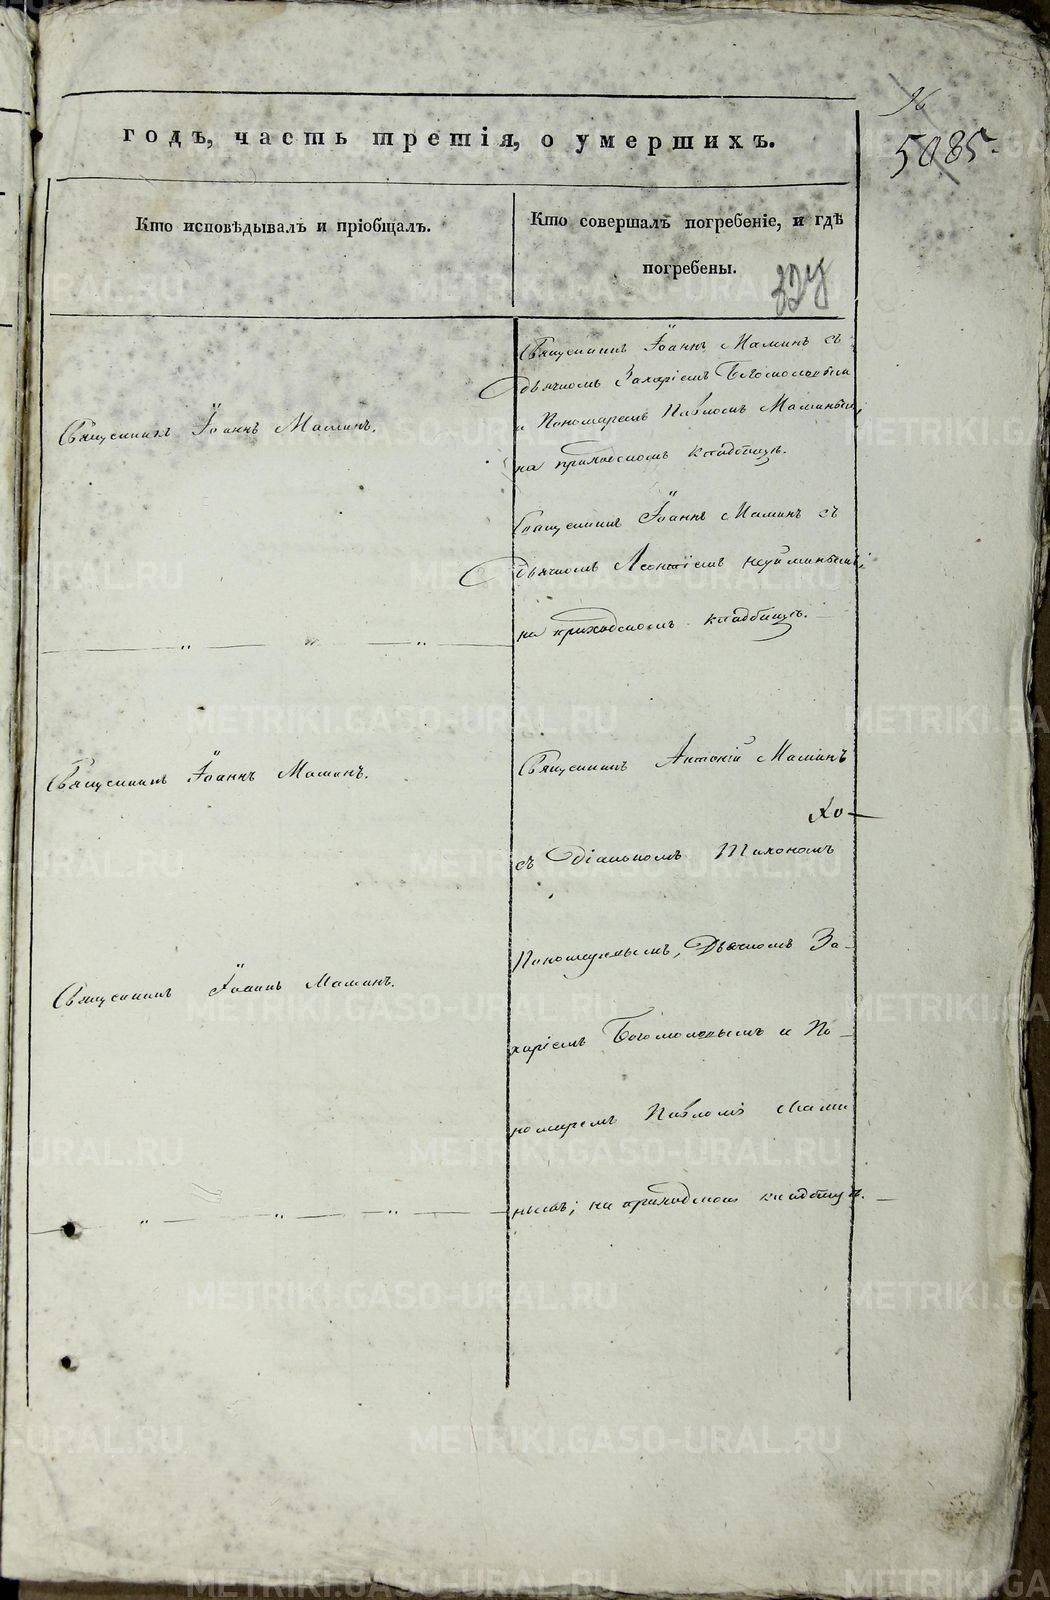 годъ, часть третія, о умершихъ.
Кто исповѣдывалъ и пріобщалъ.
Кто совершалъ погребеніе, и гдѣ
погребены.
Священникъ Іоаннъ Маминъ.
Священникъ Іоаннъ Маминъ съ
дьячкомъ Захаріемъ Богомоловымъ
и Пономаремъ Павломъ Маминымъ;
на приходскомъ кладбищѣ.
Священникъ Іоаннъ Маминъ съ
дьячкомъ Леонтіемъ
на приходскомъ кладбищѣ.
Священникъ Іоаннъ Маминъ.
Священникъ Антоній Маминъ
съ Діакономъ Тихономъ
Пономаревымъ, Дьячкомъ За-
Священникъ Іоаннъ Маминъ.
харіемъ Богомоловымъ и По-
номаремъ Павломъ Мами
нымъ; на приходскомъ кладбищѣ.
METRIKI.GASO-URAL.RU